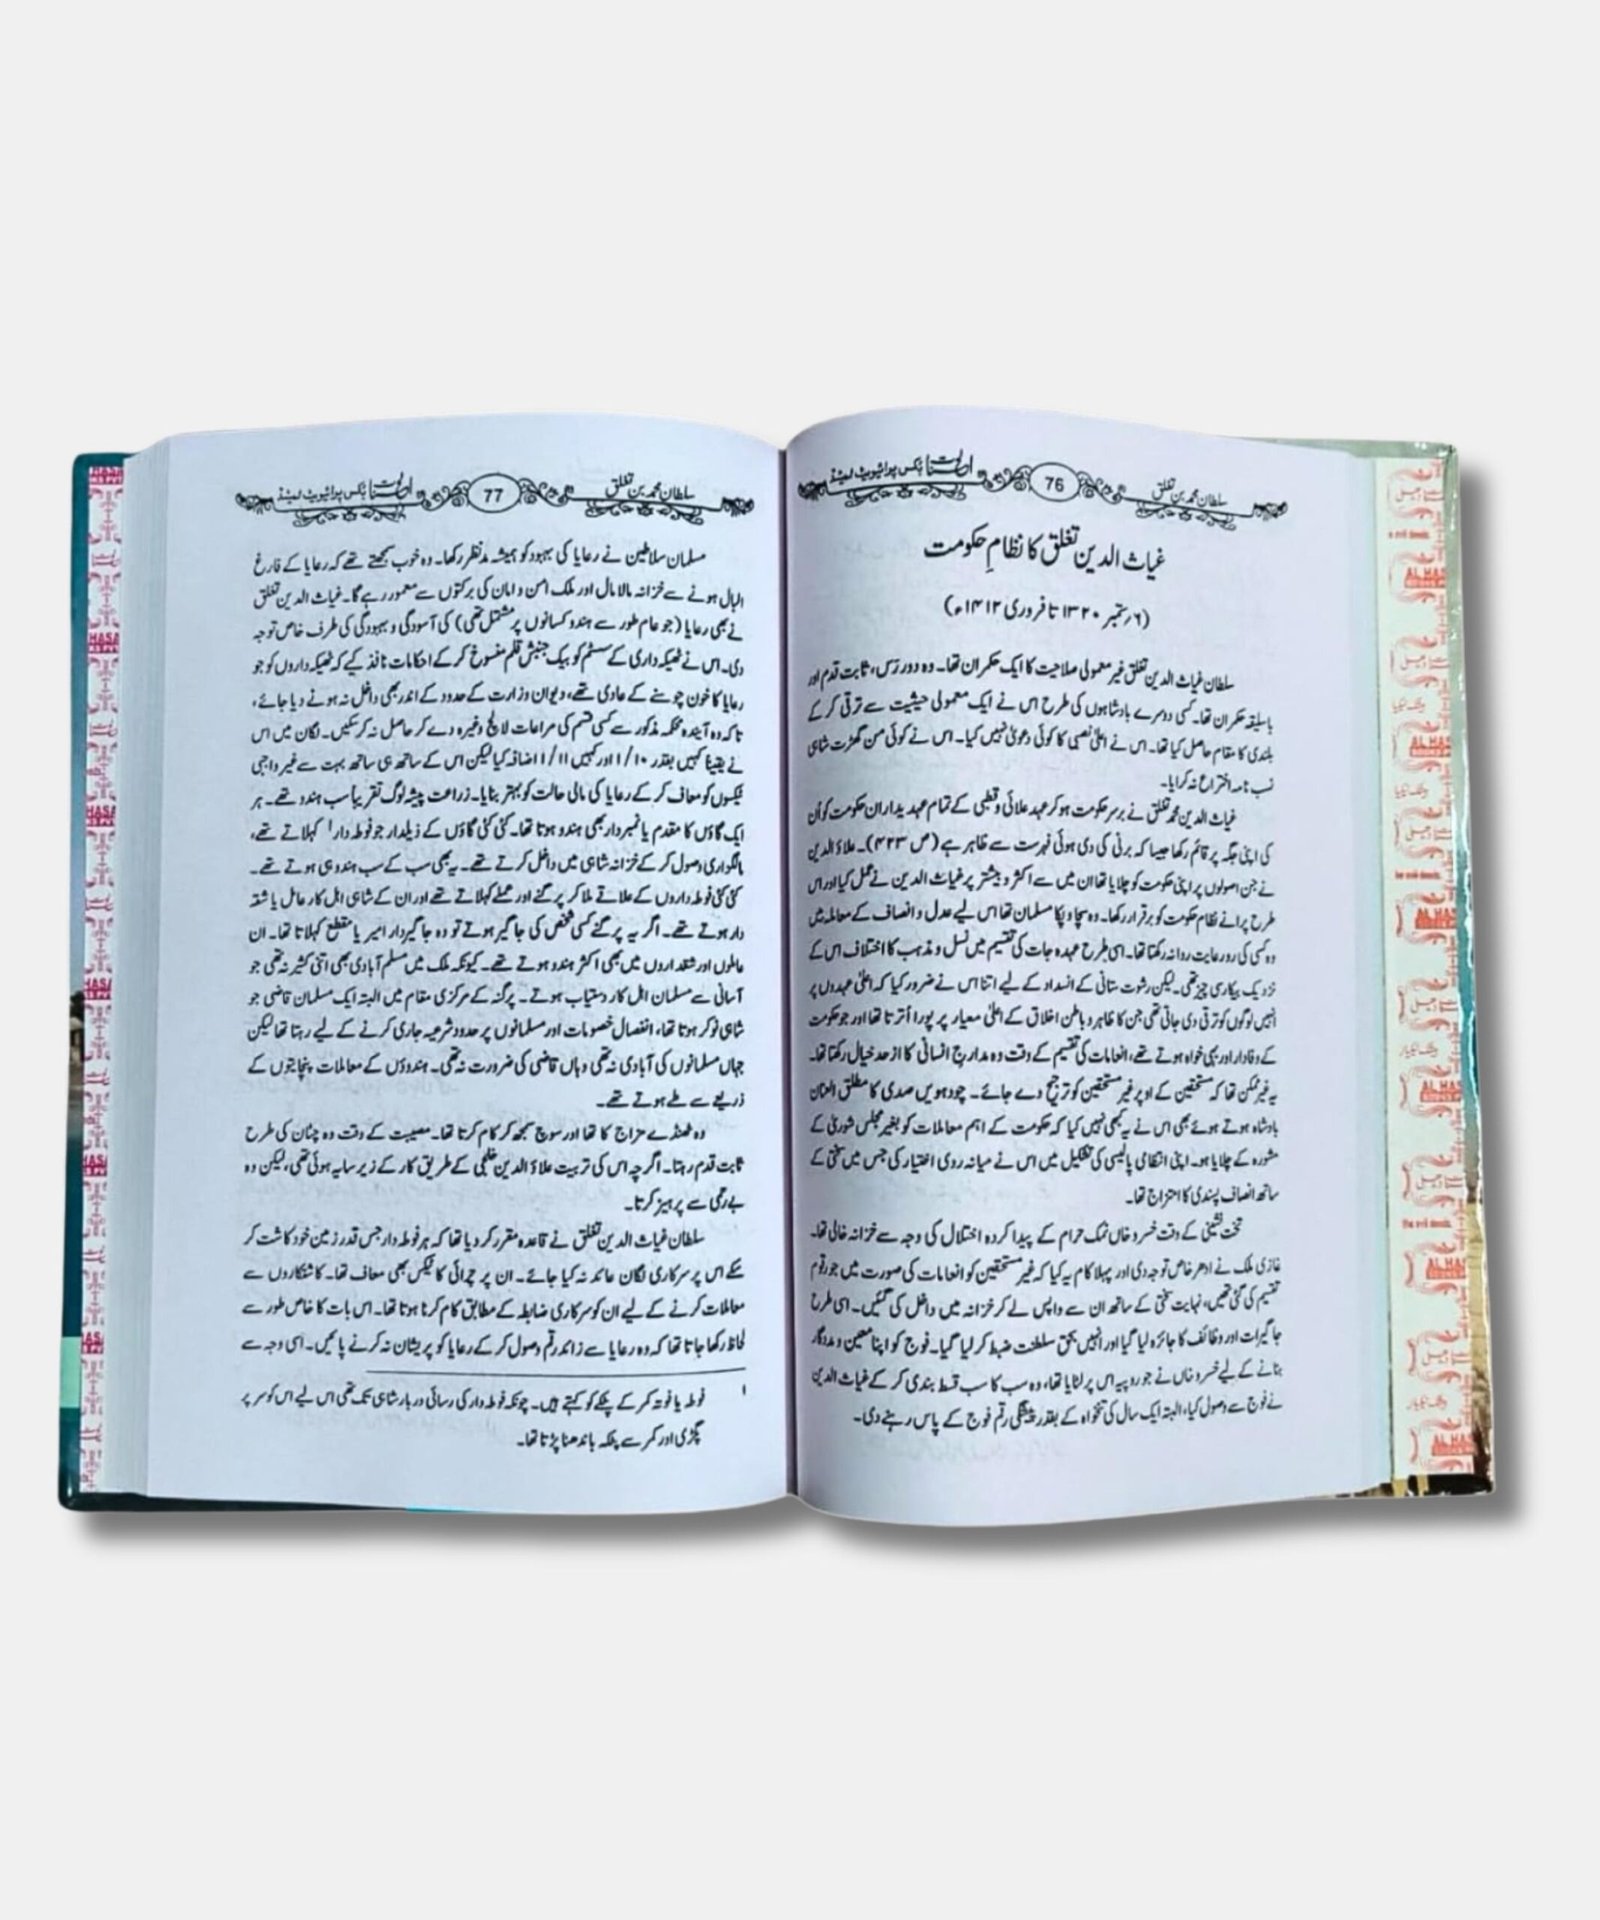 سلطان محمد بن تغلق
76
بکس پرائیویٹ لمیٹڈ
غیاث الدین تغلق کا نظامِ حکومت
(۶؍ستمبر ۱۳۲۰ تا فروری ۱۴۱۲ء)
سلطان غیاث الدین تغلق غیر معمولی صلاحیت کا ایک حکمران تھا۔ وہ دور رَس، ثابت قدم اور
باسلیقہ حکمران تھا۔ کسی دوسرے بادشاہوں کی طرح اس نے ایک معمولی حیثیت سے ترقی کر کے
بلندی کا مقام حاصل کیا تھا۔ اس نے اعلیٰ نصبی کا کوئی دعویٰ نہیں کیا۔ اس نے کوئی من گھڑت شاہی
نسب نامہ اختراع نہ کرایا۔
غیاث الدین محمد تغلق نے برسر حکومت ہو کر عہد علائی و قطبی کے تمام عہدیداران حکومت کو اُن
کی اپنی جگہ پر قائم رکھا جیسا کہ برنی کی دی ہوئی فہرست سے ظاہر ہے (ص ۴۲۳)۔ علاؤ الدین
نے جن اصولوں پر اپنی حکومت کو چلایا تھا ان میں سے اکثر و بیشتر پر غیاث الدین نے عمل کیا اور اس
طرح پرانے نظام حکومت کو برقرار رکھا۔ وہ سچا و پکا مسلمان تھا اس لیے عدل و انصاف کے معاملہ میں
وہ کسی کی رو رعایت روا نہ رکھتا تھا۔ اسی طرح عہدہ جات کی تقسیم میں نسل و مذہب کا اختلاف اس کے
نزدیک بیکار سی چیز تھی۔ لیکن رشوت ستانی کے انسداد کے لیے اتنا اس نے ضرور کیا کہ اعلیٰ عہدوں پر
انہیں لوگوں کو ترقی دی جاتی تھی جن کا ظاہر و باطن اخلاق کے اعلیٰ معیار پر پورا اُترتا تھا اور جو حکومت
کے وفادار اور بہی خواہ ہوتے تھے، انعامات کی تقسیم کے وقت وہ مدارج انسانی کا از حد خیال رکھتا تھا۔
یہ غیر ممکن تھا کہ مستحقین کے اوپر غیر مستحقین کو ترجیح دے جائے۔ چودہویں صدی کا مطلق العنان
بادشاہ ہوتے ہوئے بھی اس نے یہ کبھی نہیں کیا کہ حکومت کے اہم معاملات کو بغیر مجلس شوریٰ کے
مشورہ کے چلایا ہو۔ اپنی انتظامی پالیسی کی تشکیل میں اس نے میانہ روی اختیار کی جس میں سختی کے
ساتھ انصاف پسندی کا امتزاج تھا۔
تخت نشینی کے وقت خسرو خاں نمک حرام کے پیدا کردہ اختلال کی وجہ سے خزانہ خالی تھا۔
غازی ملک نے ادھر خاص توجہ دی اور پہلا کام یہ کیا کہ غیر مستحقین کو انعامات کی صورت میں جو رقوم
تقسیم کی گئی تھیں، نہایت سختی کے ساتھ ان سے واپس لے کر خزانہ میں داخل کی گئیں۔ اسی طرح
جاگیرات اور وظائف کا جائزہ لیا گیا اور انہیں بحق سلطنت ضبط کر لیا گیا۔ فوج کو اپنا معین و مددگار
بنانے کے لیے خسرو خاں نے جو روپیہ اس پر لٹایا تھا، وہ سب کا سب قسط بندی کر کے غیاث الدین
نے فوج سے وصول کیا، البتہ ایک سال کی تنخواہ کے بقدر پیشگی رقم فوج کے پاس رہنے دی۔
سلطان محمد بن تغلق
77
بکس پرائیویٹ لمیٹڈ
مسلمان سلاطین نے رعایا کی بہبود کو ہمیشہ مدنظر رکھا۔ وہ خوب سمجھتے تھے کہ رعایا کے فارغ
البال ہونے سے خزانہ مالا مال اور ملک امن و امان کی برکتوں سے معمور رہے گا۔ غیاث الدین تغلق
نے بھی رعایا (جو عام طور سے ہندو کسانوں پر مشتمل تھی) کی آسودگی و بہبودگی کی طرف خاص توجہ
دی۔ اس نے ٹھیکہ داری کے سسٹم کو بیک جنبش قلم منسوخ کر کے احکامات نافذ کیے کہ ٹھیکہ داروں کو جو
رعایا کا خون چوسنے کے عادی تھے، دیوان وزارت کے حدود کے اندر بھی داخل نہ ہونے دیا جائے،
تاکہ وہ آیندہ محکمہ مذکور سے کسی قسم کی مراعات لالچ وغیرہ دے کر حاصل نہ کر سکیں۔ لگان میں اس
نے یقیناً کہیں بقدر ۱/۱۰ اور کہیں ۱/۱۱ اضافہ کیا لیکن اس کے ساتھ ہی ساتھ بہت سے غیر واجبی
ٹیکسوں کو معاف کر کے رعایا کی مالی حالت کو بہتر بنایا۔ زراعت پیشہ لوگ تقریباً سب ہندو تھے۔ ہر
ایک گاؤں کا مقدم یا نمبردار بھی ہندو ہوتا تھا۔ کئی کئی گاؤں کے ذیلدار جو فوطہ دار۱ کہلاتے تھے،
مالگواری وصول کر کے خزانہ شاہی میں داخل کرتے تھے۔ یہ بھی سب کے سب ہندو ہی ہوتے تھے۔
کئی کئی فوطہ داروں کے علاقے ملا کر پرگنے اور عملے کہلاتے تھے اور ان کے شاہی اہل کار عامل یا شقہ
دار ہوتے تھے۔ اگر یہ پرگنے کسی شخص کی جاگیر ہوتے تو وہ جاگیردار امیر یا مقطع کہلاتا تھا۔ ان
عاملوں اور شقداروں میں بھی اکثر ہندو ہوتے تھے۔ کیونکہ ملک میں مسلم آبادی بھی اتنی کثیر نہ تھی جو
آسانی سے مسلمان اہل کار دستیاب ہوتے۔ پرگنہ کے مرکزی مقام میں البتہ ایک مسلمان قاضی جو
شاہی نوکر ہوتا تھا، انفصال خصومات اور مسلمانوں پر حدود شرعیہ جاری کرنے کے لیے رہتا تھا لیکن
جہاں مسلمانوں کی آبادی نہ تھی وہاں قاضی کی ضرورت نہ تھی۔ ہندوؤں کے معاملات پنچایتوں کے
ذریعے سے طے ہوتے تھے۔
وہ ٹھنڈے مزاج کا تھا اور سوچ سمجھ کر کام کرتا تھا۔ مصیبت کے وقت وہ چٹان کی طرح
ثابت قدم رہتا۔ اگرچہ اس کی تربیت علاؤ الدین خلجی کے طریق کار کے زیر سایہ ہوئی تھی، لیکن وہ
بے رحمی سے پرہیز کرتا۔
سلطان غیاث الدین تغلق نے قاعدہ مقرر کر دیا تھا کہ ہر فوطہ دار جس قدر زمین خود کاشت کر
سکے اس پر سرکاری لگان عائد نہ کیا جائے۔ ان پر چرائی کا ٹیکس بھی معاف تھا۔ کاشتکاروں سے
معاملات کرنے کے لیے ان کو سرکاری ضابطہ کے مطابق کام کرنا ہوتا تھا۔ اس بات کا خاص طور سے
لحاظ رکھا جاتا تھا کہ وہ رعایا سے زائد رقم وصول کر کے رعایا کو پریشان نہ کرنے پائیں۔ اسی وجہ سے
۱ فوطہ یا فوتہ کمر کے پٹکے کو کہتے ہیں۔ چونکہ فوطہ دار کی رسائی دربار شاہی تک تھی اس لیے اس کو سر پر
پگڑی اور کمر سے پٹکہ باندھنا پڑتا تھا۔